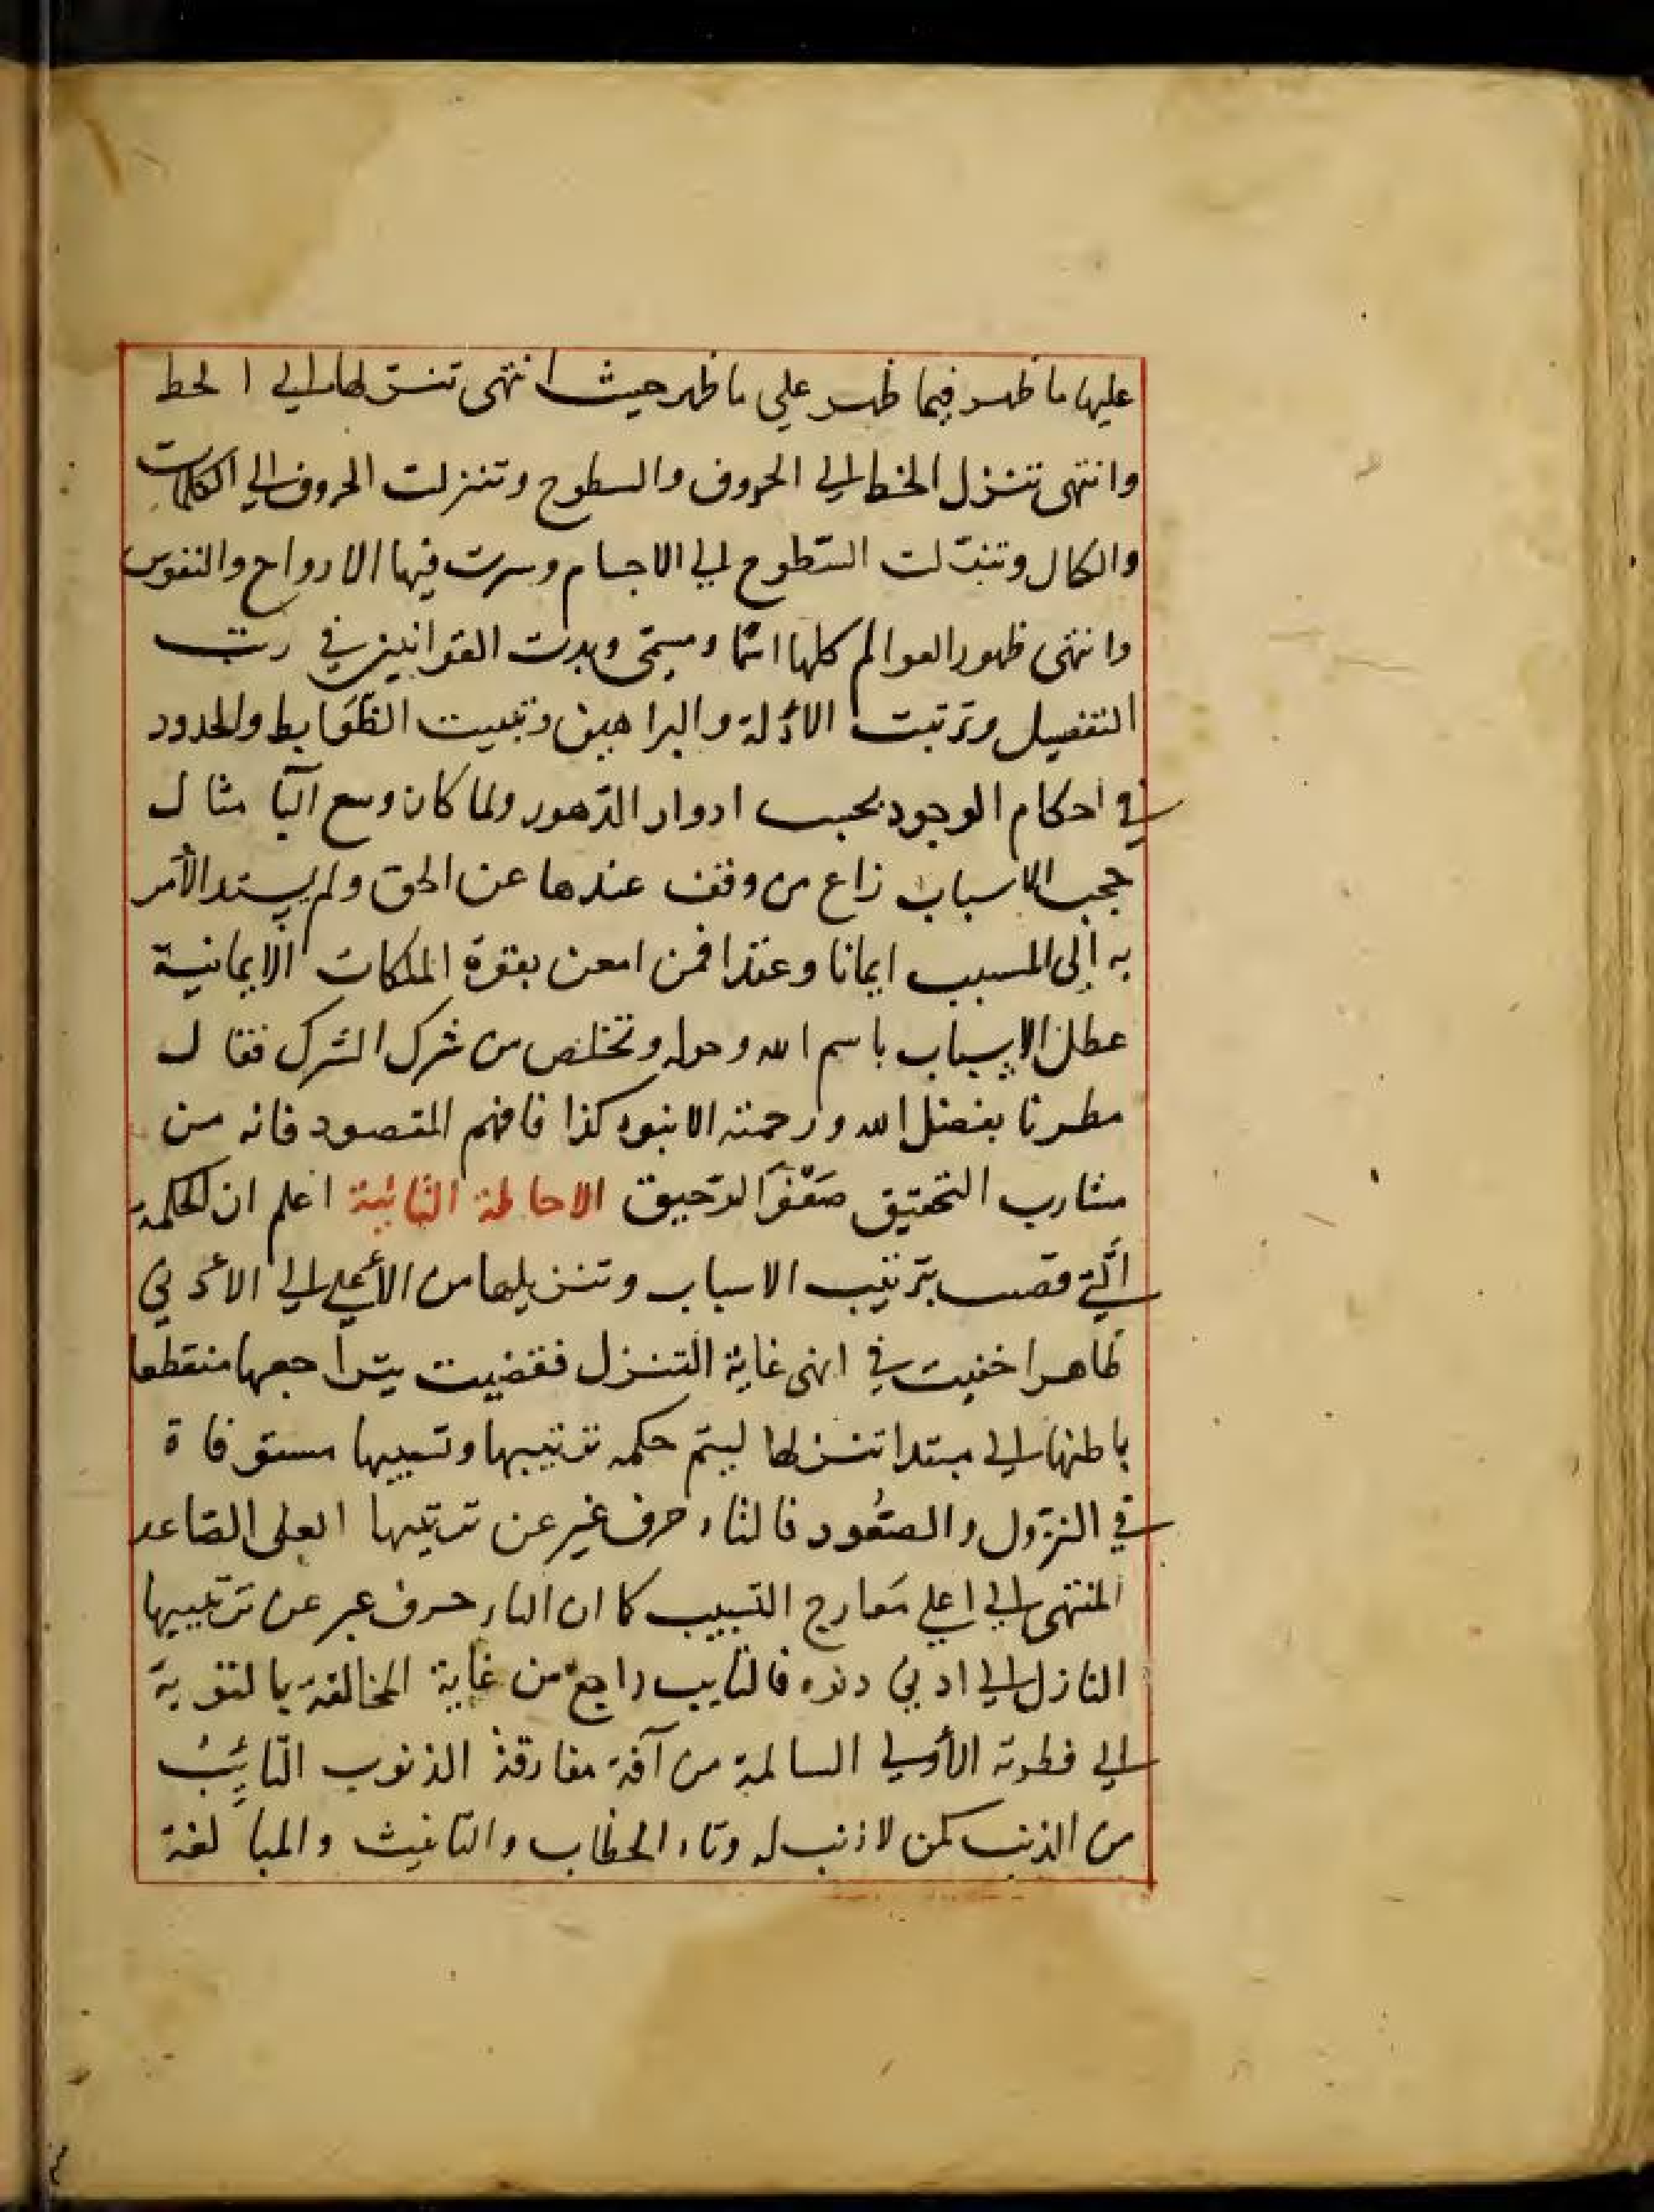 عليها ما ظهر فيما ظهر علي ما ظهر حيث انتهى تنزلها الي الخط
وانتهى تنزل الخط الي الحروف والسطوح وتنزلت الحروف الي الكلمات
والكال وتنزلت السّطوح الي الاجسام وسرت فيها الارواح والنفوس
وانتهى ظهور العوالم كلها اسمًا ومسمّى وبدت القوانين في رتب
التفصيل وترتبت الأدلة والبراهين وتعينت الضّوابط والحدود
في احكام الوجود بحسب ادوار الدّهور ولما كان وسع البا مثال
حجب الاسباب زاغ من وقف عندها عن الحق ولم يسند الأمر
به إلى المسبب ايمانا وعقدا فمن امعن بقوة الملكات الايمانية
عطل الاسباب باسم الله وحوله وتخلص من شرك الشرك فقال
مطرنا بفضل الله ورحمته لا بنوء كذا فافهم المقصود فانه من
مشارب التحقيق صَفْوَ الرّحيق الاحاطة الثانية اعلم ان الحكمة
الّتي قضت بترتيب الاسباب وتنزيلها من الأعلي الي الأدني
ظاهرا خفيت في انهى غاية التنزل فقضيت بتراجعها منقطعا
باطنها الي مبتدا تنزلها ليتم حكمه ترتيبها وتسبيبها مستوفاة
في النزول والصعُود فالتاء حرف عبر عن ترتيبها العلى الصّاعد
المنتهى الي اعلي مَعارج التسبيب كما ان الباء حرف عبر عن ترتيبها
النازل الي ادني دنوه فالتايب راجع من غاية المخالفة بالتوبة
الي فطرته الأولي السالمة من آفة مفارقة الذنوب التّائِبُ
من الذنب كمن لا ذنب له وتاء الخطاب والتانيث والمبالغة